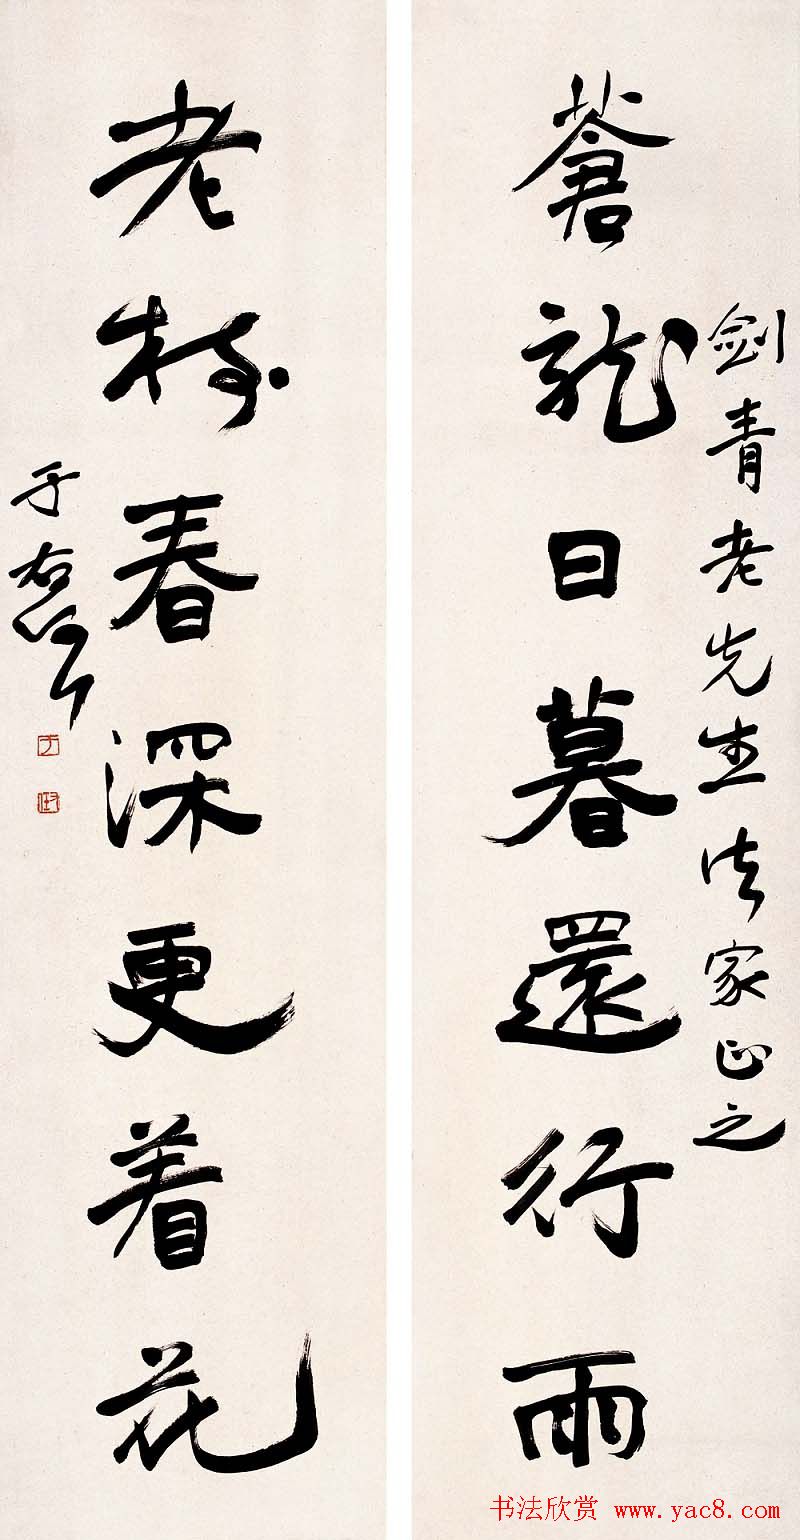 劍青老先生法家正之
蒼龍日暮還行雨
老樹春深更着花
于右任
书法欣赏 www.yac8.com